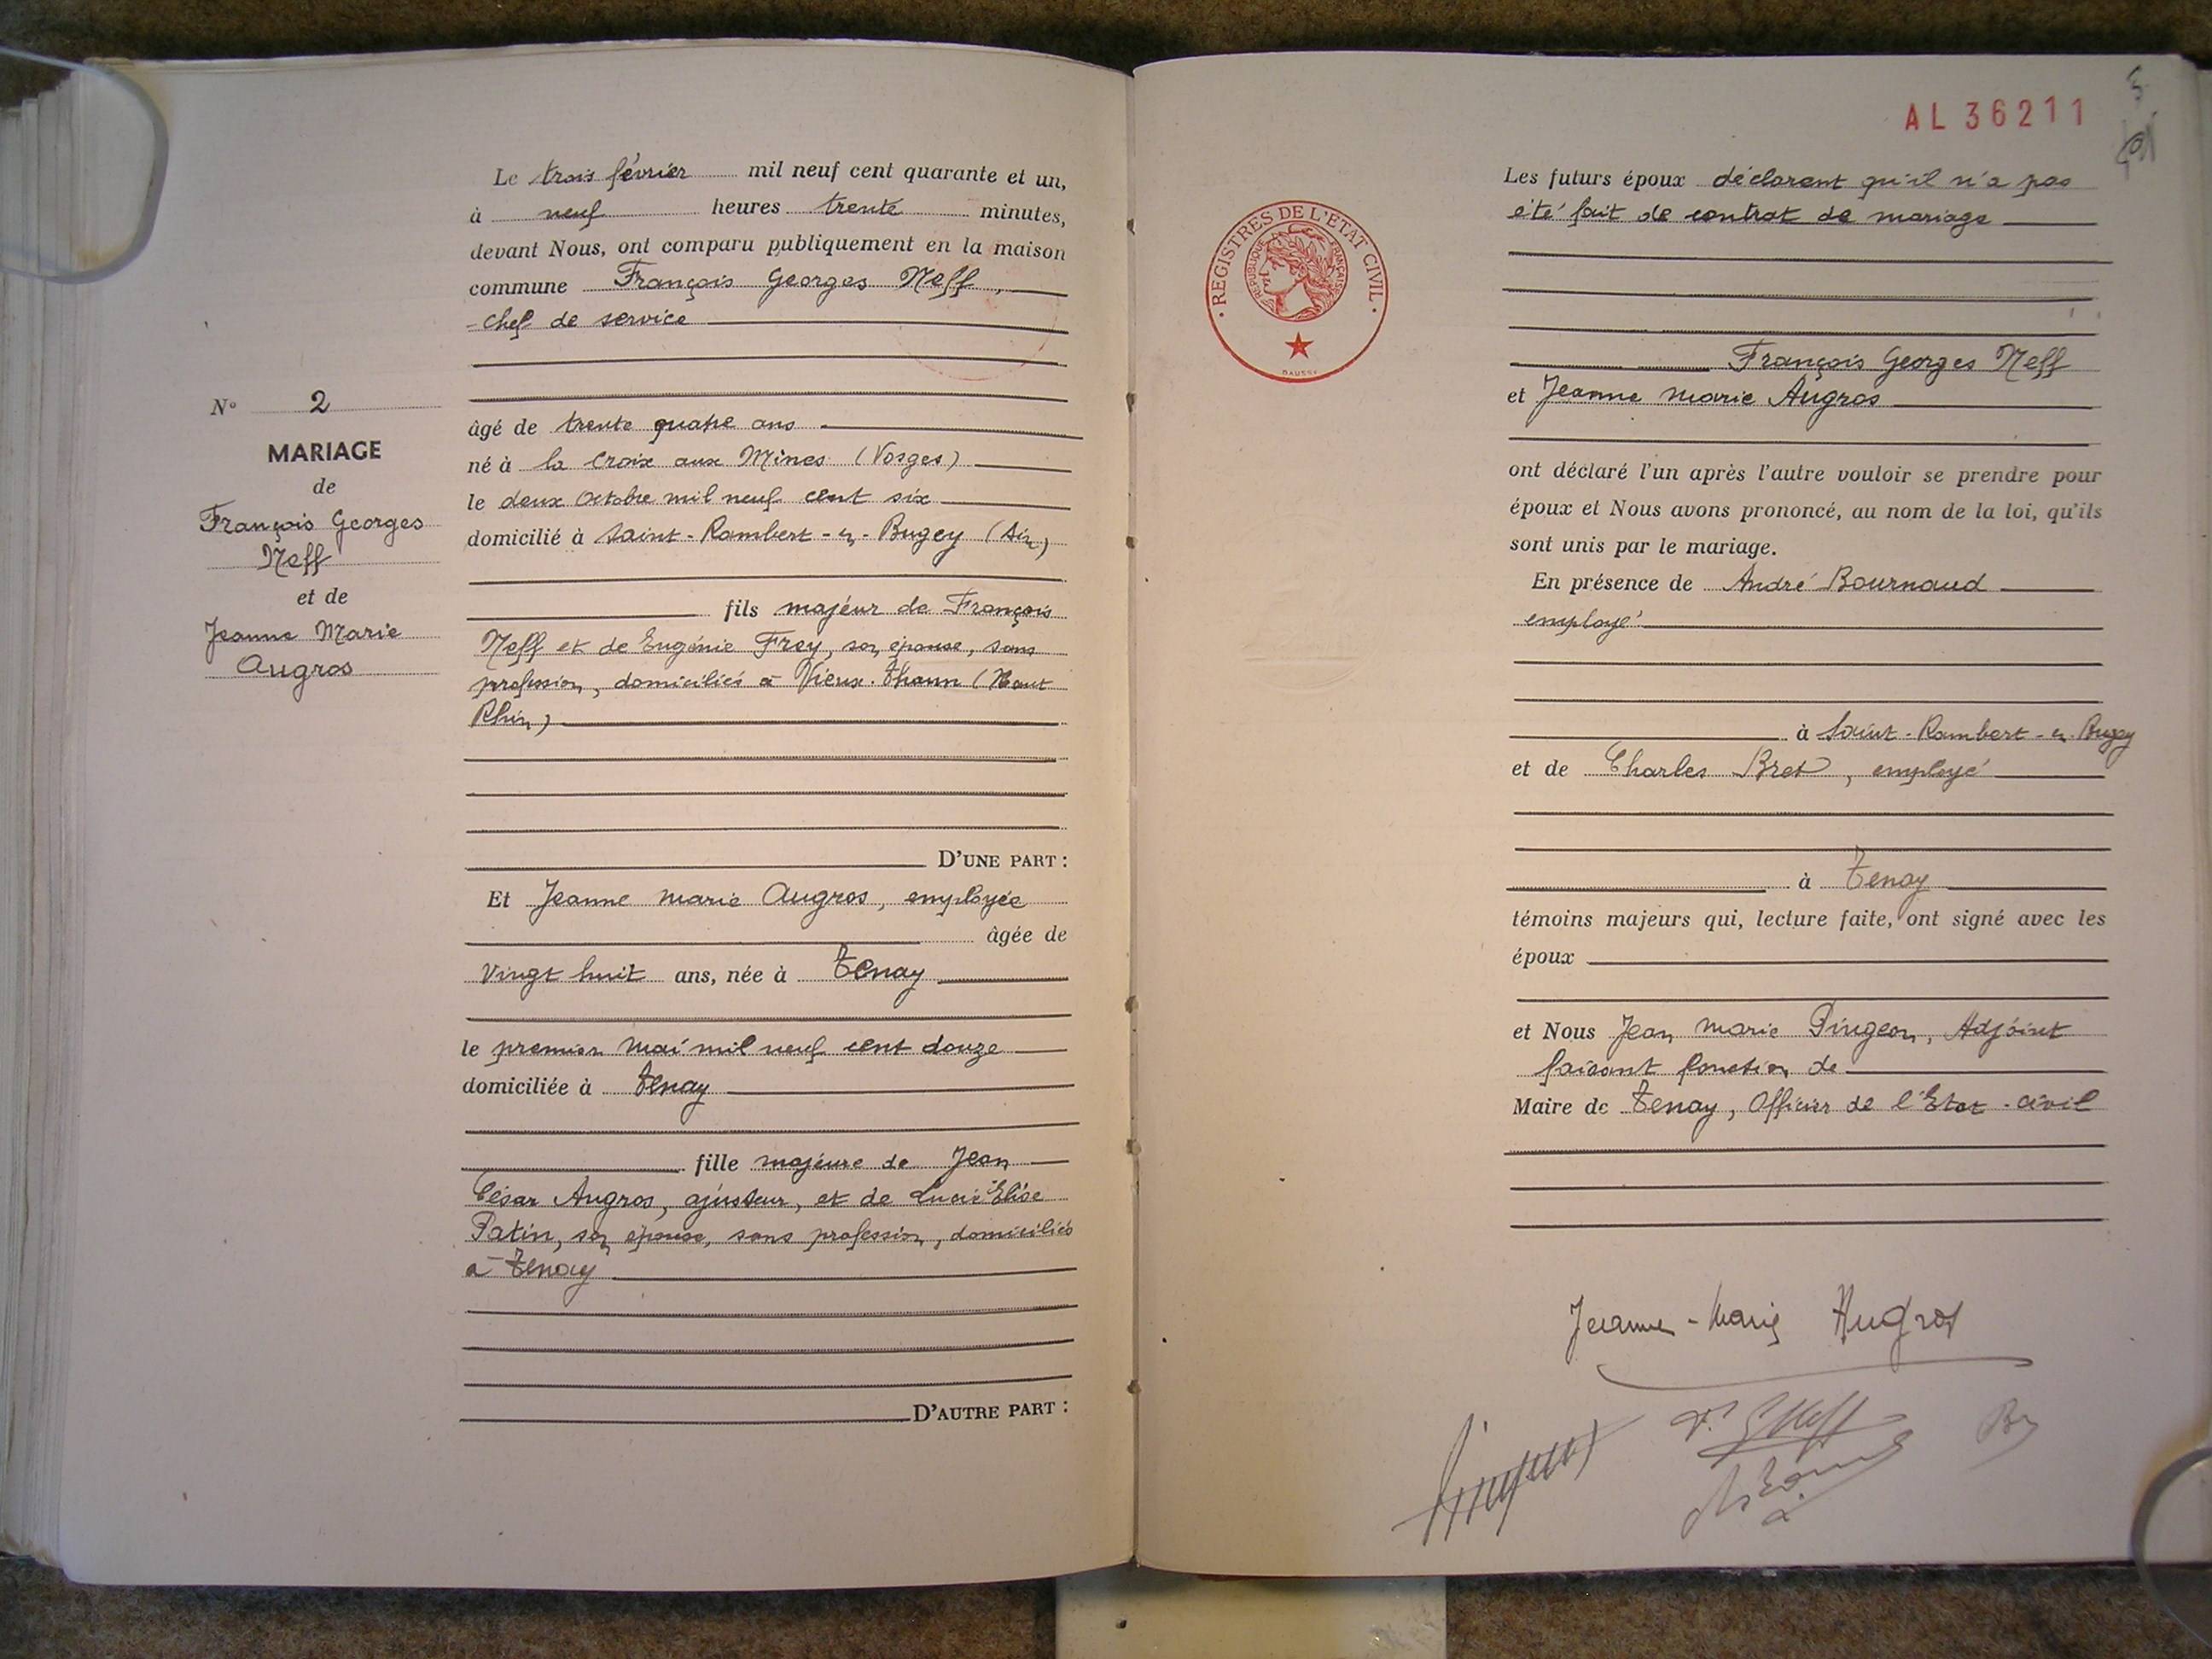 Le trois février mil neuf cent quarante et un,
à neuf heures trente minutes,
devant Nous, ont comparu publiquement en la maison
commune François Georges Neff,
chef de service
N° 2
MARIAGE
de
François Georges
Neff
et de
Jeanne Marie
Augros
âgé de trente quatre ans
né à la Croix aux Mines (Vosges)
le deux Octobre mil neuf cent six
domicilié à Saint-Rambert-en-Bugey (Ain)
fils majeur de François
Neff et de Eugénie Frey, son épouse, sans
profession, domiciliés à Vieux-Thann (Haut
Rhin)
D'UNE PART :
Et Jeanne marie Augros, employée
âgée de
vingt huit ans, née à Tenay
le premier mai mil neuf cent douze
domiciliée à Tenay
fille majeure de Jean
César Augros, ajusteur, et de Lucie Elise
Patin, son épouse, sans profession, domiciliés
à Tenay
D'AUTRE PART :
AL 36211
REGISTRES DE L'ETAT CIVIL
REPUBLIQUE FRANÇAISE
Les futurs époux déclarent qu'il n'a pas
été fait de contrat de mariage
François Georges Neff
et Jeanne marie Augros
ont déclaré l'un après l'autre vouloir se prendre pour
époux et Nous avons prononcé, au nom de la loi, qu'ils
sont unis par le mariage.
En présence de André Bournaud
employé
à Saint-Rambert-en-Bugey
et de Charles Bret, employé
à Tenay
témoins majeurs qui, lecture faite, ont signé avec les
époux
et Nous Jean marie Pingeon, Adjoint
faisant fonction de
Maire de Tenay, Officier de l'Etat-civil
Jeanne-Marie Augros